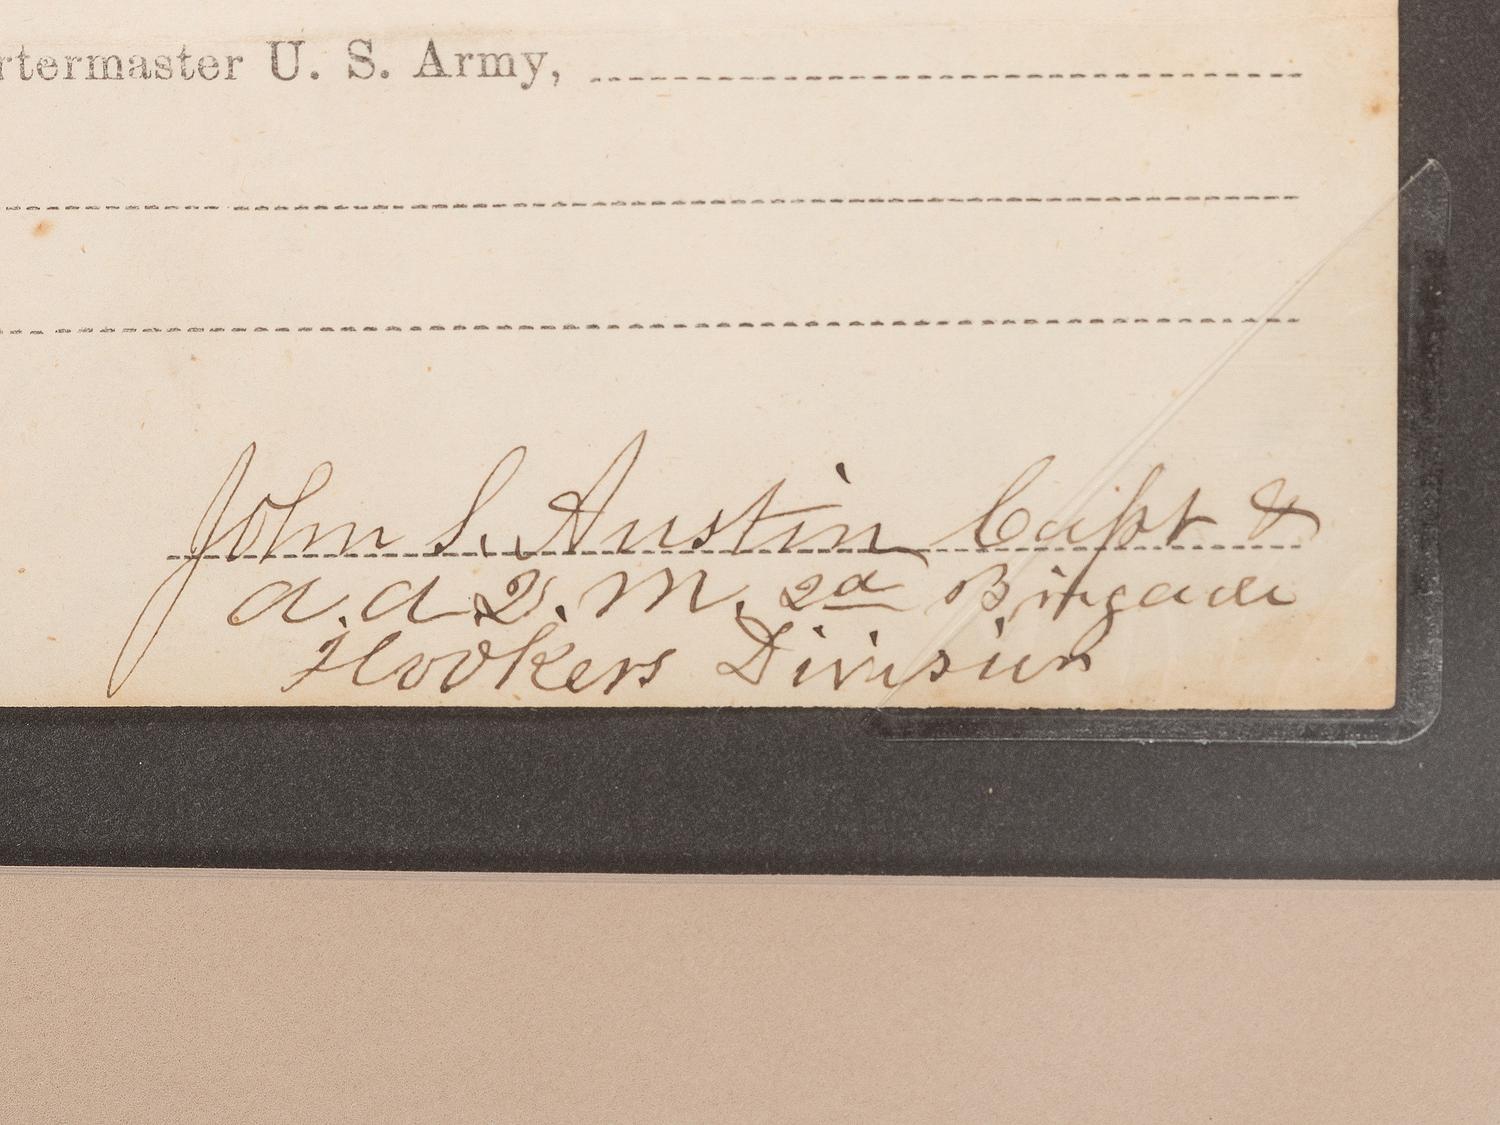 rtermaster U. S. Army,
John S. Austin Capt &
a. a Q. M. 2d Brigade
Hookers Division